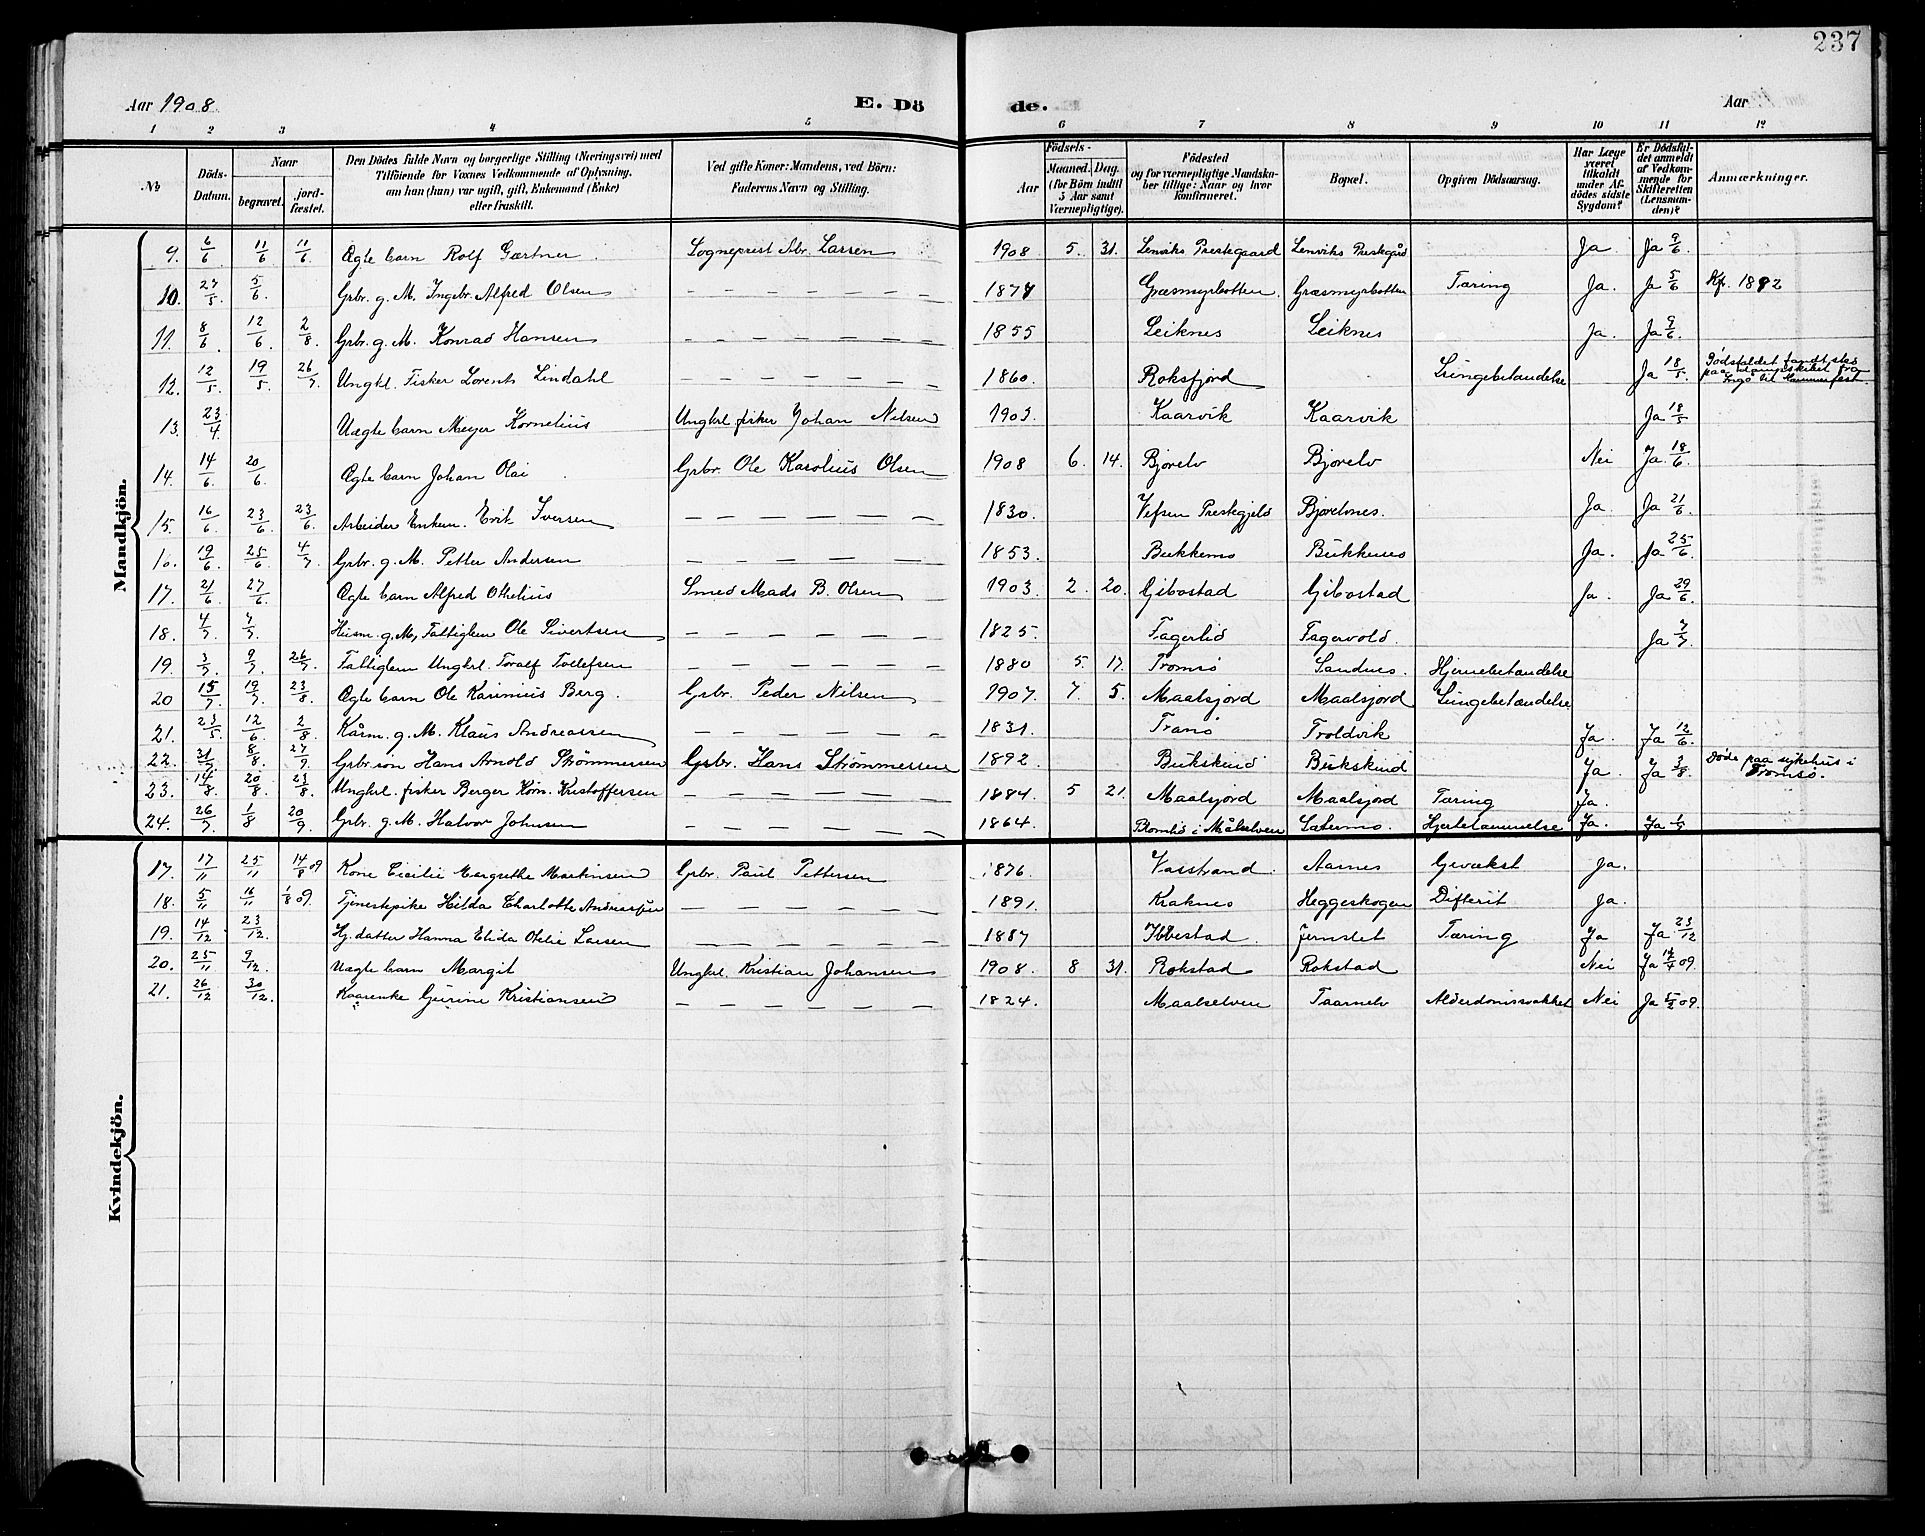 237
Aar 1908. E. Dö de. Aar
1 2 3 4 5 6 7 8 9 10 11 12
No Döds-Datum. Naar begravet. jord-fæstet. Den Dödes fulde Navn og borgerlige Stilling (Næringsvei) med Tilföiende for Voxnes Vedkommende af Oplysning, om han (hun) var ugift, gift, Enkemand (Enke) eller fraskilt. Ved gifte Koner: Mandens, ved Börn: Faderens Navn og Stilling. Födsels- Aar Maaned. Dag. (for Börn indtil 5 Aar samt Værnepligtige). Födested og for værnepligtige Mandskaber tillige: Naar og hvor konfirmeret. Bopæl. Opgiven Dödsaarsag. Har Læge været tilkaldt under Afdödes sidste Sygdom? Er Dödsfaldet anmeldt af Vedkommende for Skifteretten (Lensmanden)? Anmærkninger.
Mandkjön.
9. 6/6 11/6 11/6 Ægte barn Rolf Gærtner Sogneprest Abr. Larsen 1908 5. 31. Lenviks Prestegaard Lenviks Prestegård Ja. Ja 9/6
10. 27/5. 5/6. Grbr. g. M. Ingebr. Alfred Olsen 1874 Græsmyrbotten. Græsmyrbotten Tæring Ja. Ja 5/6 Kp. 1892
11. 8/6 12/6. 2/8 Grbr. g. M. Konrad Hansen 1855 Leiknes Leiknes Ja. Ja 9/6.
12. 12/5. 19/5. 26/7 Ungkl. Fisker Lorents Lindahl 1860. Roksfjord Lungebetændelse Ja 18/5. Dödsfaldet fandt sted paa dampskibet fra Ingö til Hammerfest
13. 23/4 Uægte barn Meyer Kornelius Ungkl. fisker Johan Nilsen 1903. Kaarvik Kaarvik Ja 18/5
14. 14/6 20/6. Ægte barn Johan Olai Grbr. Ole Karolius Olsen 1908 6. 14. Bjorelv Bjorelv Nei Ja 18/6.
15. 16/6 23/6 23/6. Arbeider Enkem. Erik Iversen 1830. Vefsen Prestegjeld Bjorelvnes. Ja. Ja 21/6
16. 19/6 25/6. 4/7 Grbr. g. M. Petter Andersen 1853. Bukkemo Bukkemo Ja. Ja 25/6.
17. 21/6 27/6. Ægte barn Alfred Othelius Smed Mads B. Olsen 1903. 2. 20. Gibostad Gibostad Ja. Ja 29/6.
18. 4/7 7/7. Husm. g. M, Fattiglem Ole Sivertsen 1825. Fagerlid Fagervold. Ja 7/7
19. 3/7 9/7. 26/7 Fattiglem Ungkl. Toralf Tollefsen 1880 5. 17. Tromsø Sandnes. Hjernebetændelse
20 15/7. 19/7 23/8. Ægte barn Ole Karinius Berg. Grbr. Peder Nilsen 1907. 7. 5. Maalsjord Maalsjord Lungebetændelse.
21. 23/5 12/6. 2/8. Kårm. g. M. Klaus Andreassen 1831. Tranø Troldvik Ja. Ja 12/6.
22. 31/7 8/8 27/9 Grbr.søn Hans Arnold Strømmersen Grbr. Hans Strømmersen 1892. Bukskind Bukskind Ja. Ja 3/8 Døde paa sykehus i Tromsø.
23. 14/8 20/8. 23/8. Ungkl. fisker Berger Korn. Kristoffersen 1884. 5 21. Maalsjord Maalsjord Tæring Ja.
24. 26/7 1/8 20/9 Grbr. g. M. Halvor Johnsen 1864. Blomlid i Målselven Sætermo. Hjertelammelse Ja. Ja
Kvindekjön.
17. 17/11 25/11 14/8 09 Kone Cicilie Margrethe Martinsen Grbr. Paul Pettersen 1876. Vasstrand Aarnes Gevækst Ja.
18. 5/11 16/11 1/8 09. Tjenestepike Hilda Charlotte Andreassen 1891. Kraknes Heggeskogen Difterit Ja.
19. 14/12 23/12. Hj. datter Hanna Elida Otelie Larsen 1887 Ibbestad. Jernslet Tæring Ja Ja 23/12
20. 25/11 9/12. Uægte barn Margit Ungkl. Kristian Johansen 1908. 8 31. Rokstad Rokstad Nei Ja 14/4 09.
21. 26/12 30/12. Kaarenke Gurine Kristiansen 1824. Maalselven Taarnelv Alderdomssvakhet Nei Ja 5/2 09.